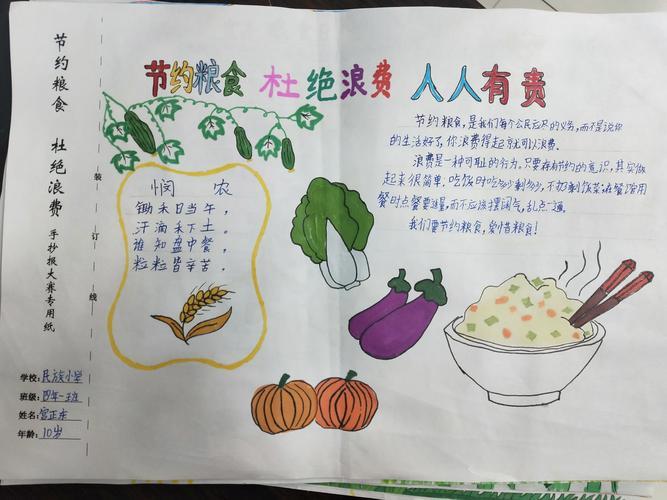 节约粮食 杜绝浪费 手抄报大赛专用纸
装订线
学校:民族小学
班级:四年一班
姓名:宫正本
年龄:10岁
节约粮食 杜绝浪费 人人有责
悯 农
锄禾日当午,
汗滴禾下土。
谁知盘中餐,
粒粒皆辛苦。
节约粮食,是我们每个公民应尽的义务,而不是说你
的生活好了,你浪费得起就可以浪费。
浪费是一种可耻的行为,只要存有节约的意识,其实做
起来很简单.吃饭时吃多少剩多少,不扔剩饭菜;在餐馆用
餐时点餐要适量,而不应该摆阔气,乱点一通。
我们要节约粮食,爱惜粮食!